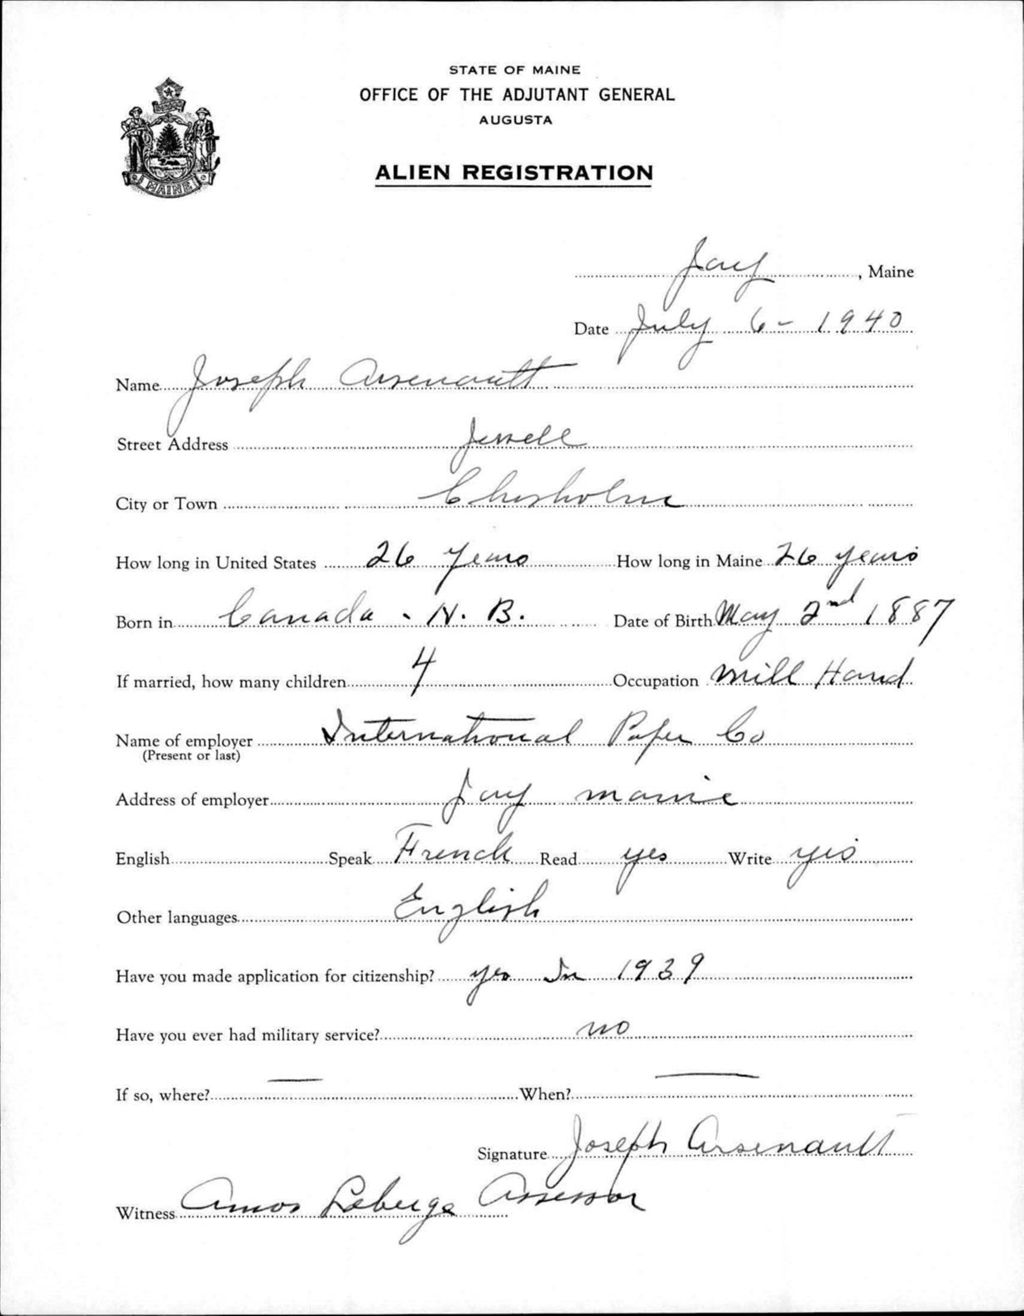 STATE OF MAINE
OFFICE OF THE ADJUTANT GENERAL
AUGUSTA
ALIEN REGISTRATION
MAINE
Jay, Maine
Date July 6 - 1940
Name Joseph Arsenault
Street Address Jewell
City or Town Chisholm
How long in United States 26 years How long in Maine 26 years
Born in Canada - N. B. Date of Birth May 2nd 1887
If married, how many children 4 Occupation Mill Hand
Name of employer International Paper Co
(Present or last)
Address of employer Jay Maine
English Speak French Read yes Write yes
Other languages English
Have you made application for citizenship? yes In 1939
Have you ever had military service? no
If so, where? — When? —
Signature Joseph Arsenault
Witness Amos Laberge Assessor